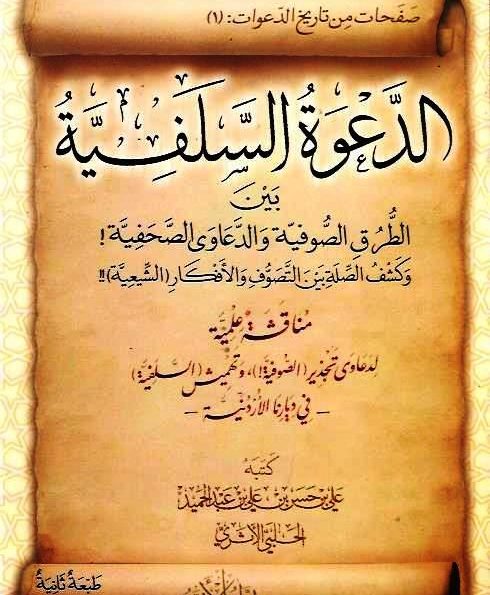 صَفَحَات مِن تاريخ الدَّعوات: (١)
الدَّعْوَةُ السَّلَفِيَّةُ
بَيْنَ
الطُّرُقِ الصُّوفِيَّة وَالدَّعَاوَى الصَّحَفِيَّة!
وَكَشْفُ الصِّلَةِ بَيْنَ التَّصَوُّفِ وَالأَفْكَارِ (الشِّيعِيَّة)!!
مُنَاقَشَةٌ عِلْمِيَّة
لِدَعَاوَى تَجْذِيرِ (الصُّوفِيَّة!)، وَتَهْمِيشِ (السَّلَفِيَّة)
- فِي دِيَارِنَا الأُرْدُنِيَّة -
كَتَبَهُ
عَلِيُّ بنُ حَسَنِ بنِ عَلِيِّ بنِ عَبْدِ الحَمِيدِ
الحَلَبِيُّ الأَثَرِيُّ
طَبْعَةٌ ثَانِيَةٌ